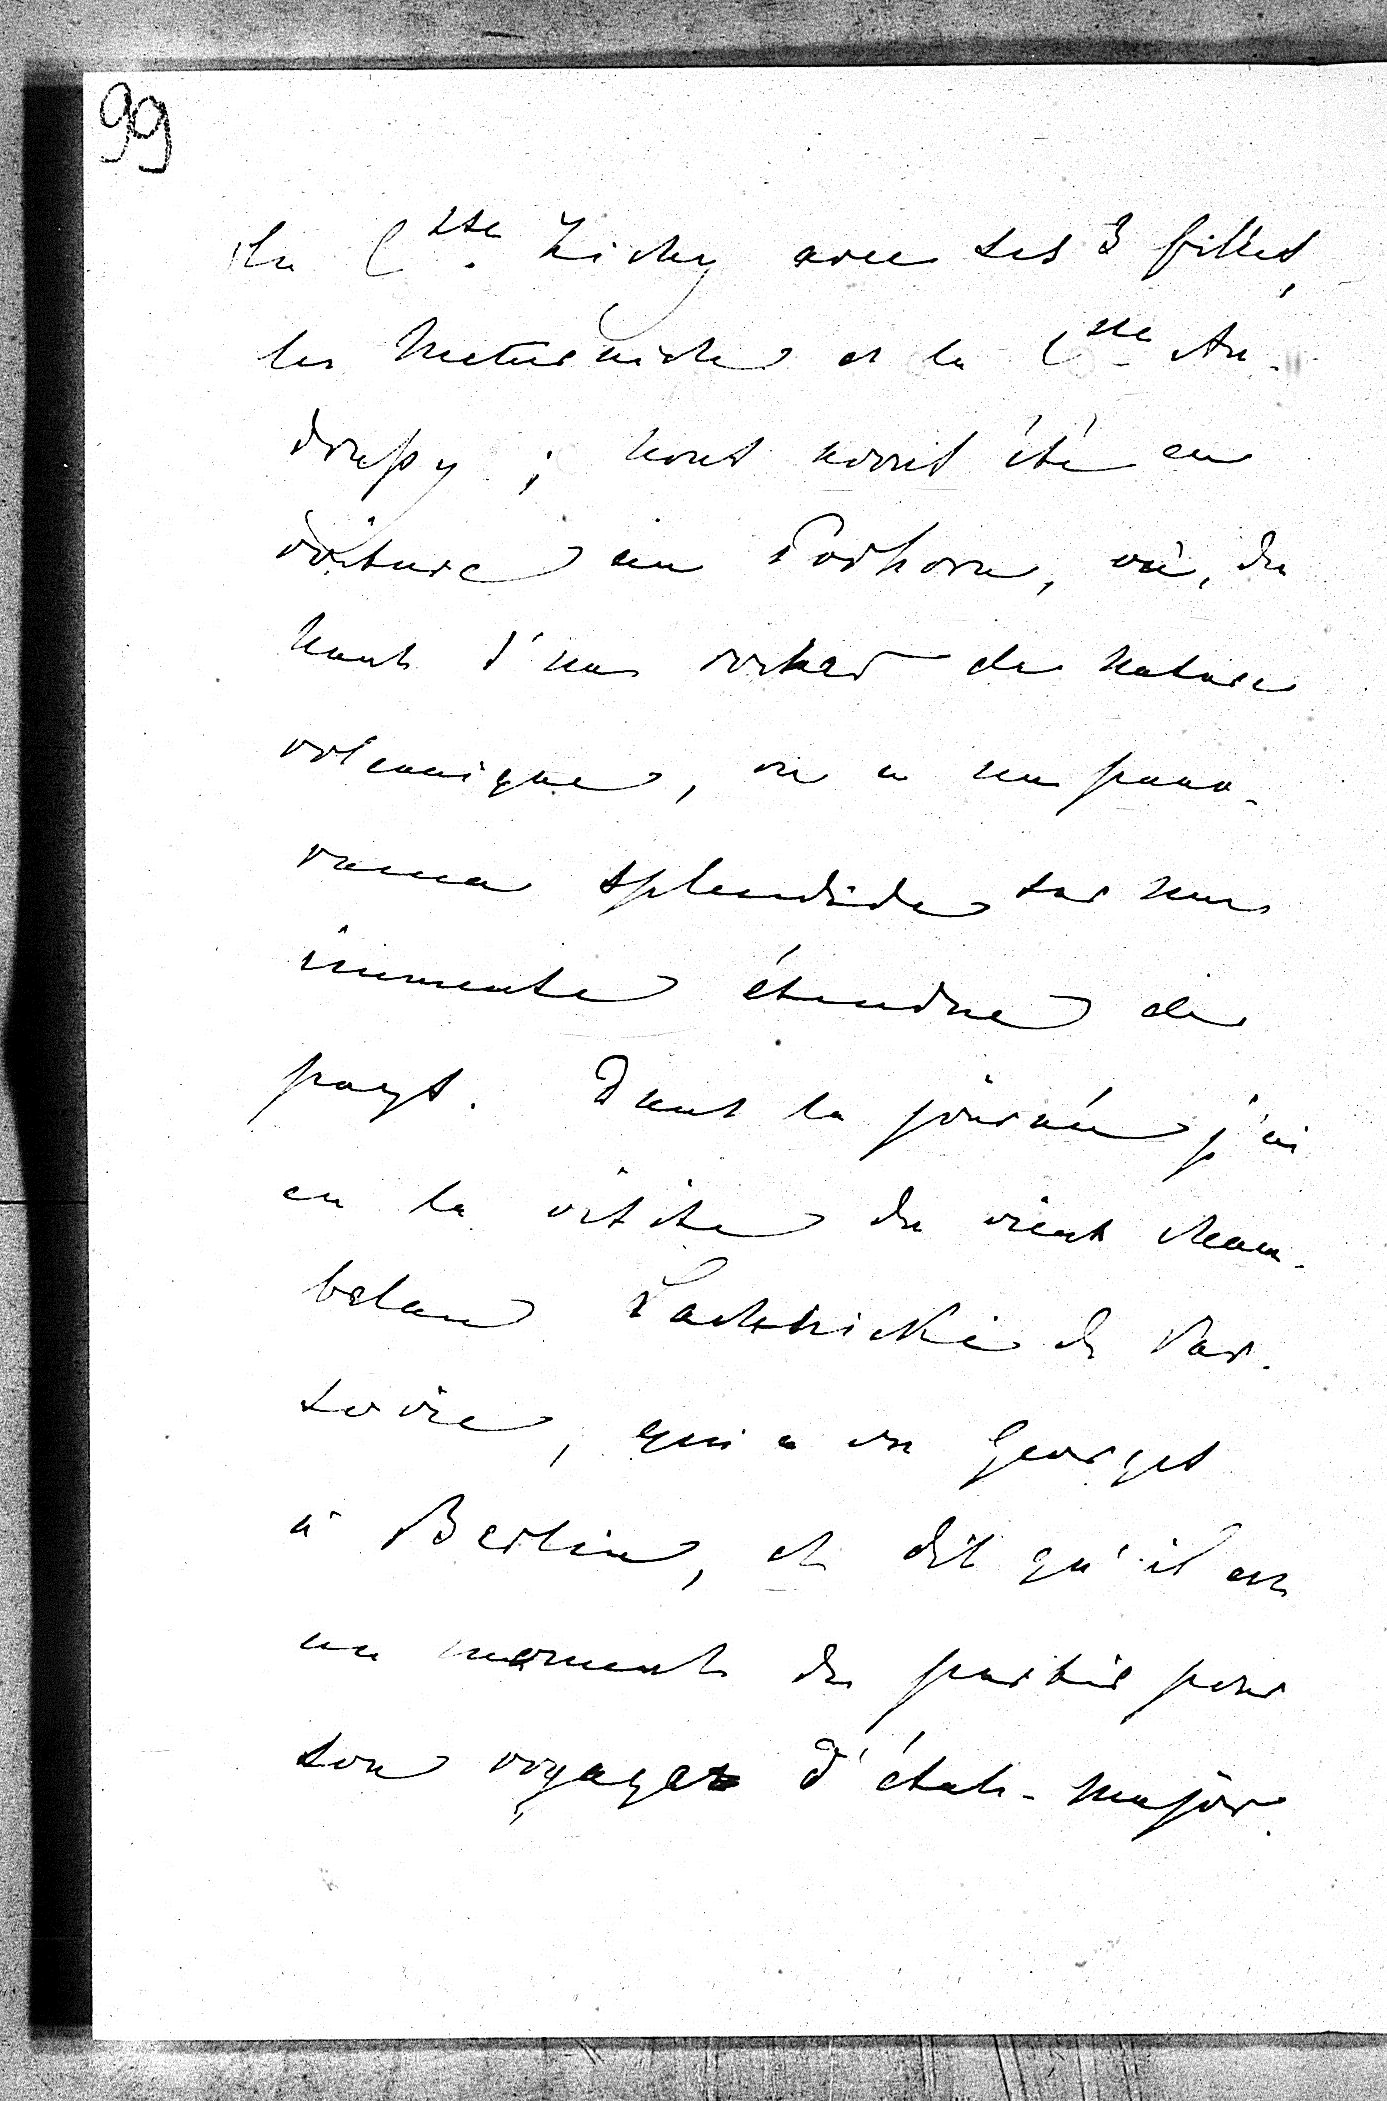 99
la C.sse Zichy avec ses 3 filles,
les Metternich et la C.sse An-
drassy ; nous avons été en
voiture au Podhorn, où, du
haut d'un rocher de nature
volcanique, on a un pano-
rama splendide sur une
immense étendue de
pays. Dans la journée j'ai
eu la visite du vieux cham-
bellan de Var-
sovie, qui a vu Georges
à Berlin, et dit qu'il est
au moment de partir pour
son voyage d'état-major.